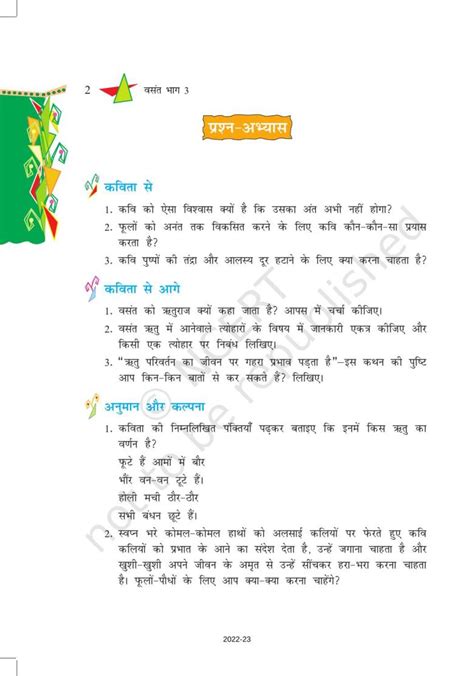 2 वसंत भाग 3
प्रश्न-अभ्यास
कविता से
1. कवि को ऐसा विश्वास क्यों है कि उसका अंत अभी नहीं होगा?
2. फूलों को अनंत तक विकसित करने के लिए कवि कौन-कौन-सा प्रयास
करता है?
3. कवि पुष्पों की तंद्रा और आलस्य दूर हटाने के लिए क्या करना चाहता है?
कविता से आगे
1. वसंत को ऋतुराज क्यों कहा जाता है? आपस में चर्चा कीजिए।
2. वसंत ऋतु में आनेवाले त्योहारों के विषय में जानकारी एकत्र कीजिए और
किसी एक त्योहार पर निबंध लिखिए।
3. “ऋतु परिवर्तन का जीवन पर गहरा प्रभाव पड़ता है”–इस कथन की पुष्टि
आप किन-किन बातों से कर सकते हैं? लिखिए।
अनुमान और कल्पना
1. कविता की निम्नलिखित पंक्तियाँ पढ़कर बताइए कि इनमें किस ऋतु का
वर्णन है?
फूटे हैं आमों में बौर
भौंर वन-वन टूटे हैं।
होली मची ठौर-ठौर
सभी बंधन छूटे हैं।
2. स्वप्न भरे कोमल-कोमल हाथों को अलसाई कलियों पर फेरते हुए कवि
कलियों को प्रभात के आने का संदेश देता है, उन्हें जगाना चाहता है और
खुशी-खुशी अपने जीवन के अमृत से उन्हें सींचकर हरा-भरा करना चाहता
है। फूलों-पौधों के लिए आप क्या-क्या करना चाहेंगे?
© NCERT
not to be republished
2022-23